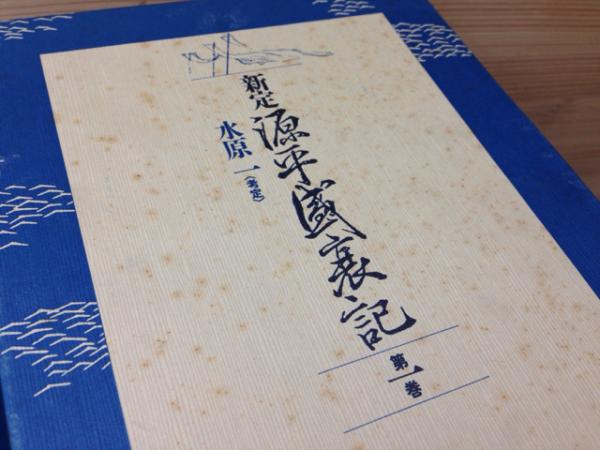 新定
源平盛衰記
水原一〈考定〉
第一巻